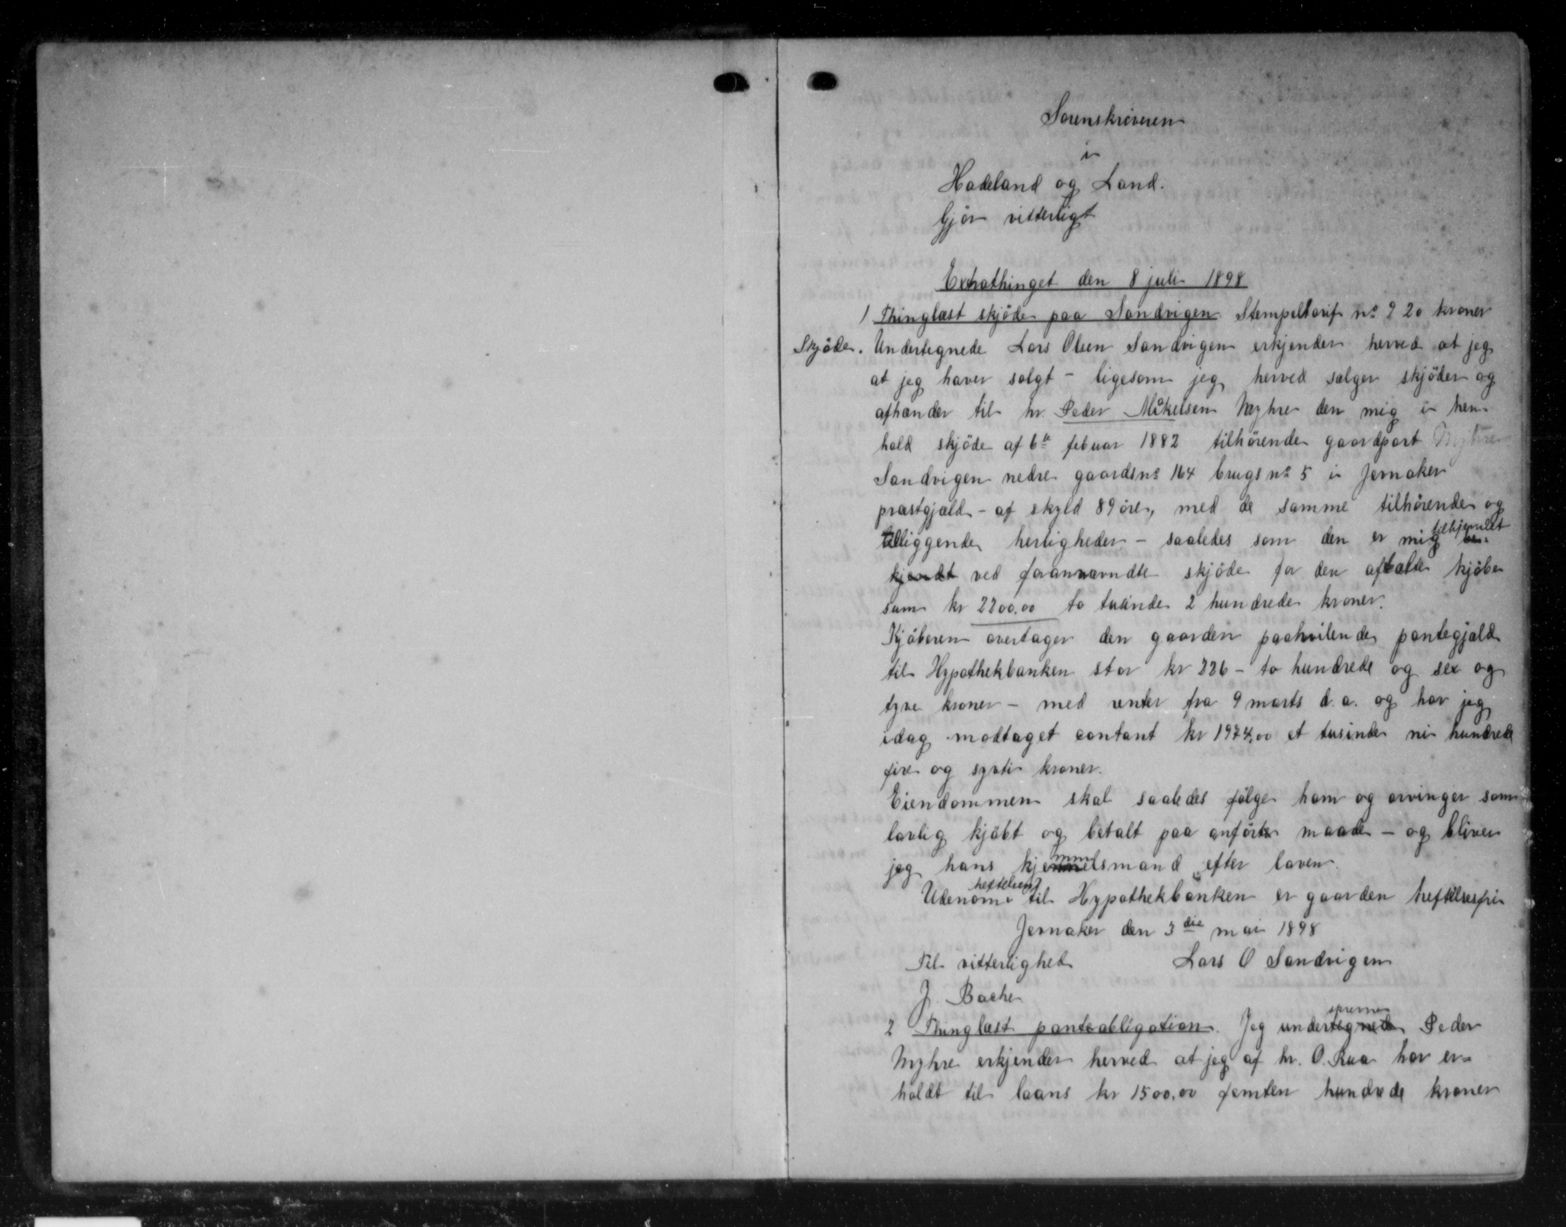 Sorenskriveren
i
Hadeland og Land.
Gjör vitterligt
Extrathinget den 8 juli 1898
1 Thinglæst skjöde paa Sandvigen Stempeltarif no 9 20 kroner
Skjöde. Undertegnede Lars Olsen Sandvigen erkjender herved at jeg
at jeg haver solgt – ligesom jeg herved sælger skjöder og
afhænder til hr. Peder Mikelsen Myhre den mig i hen-
hold skjöde af 6te febuar 1882 tilhörende gaardpart Myhre
Sandvigen nedre gaardsno 164 brugsno 5 i Jevnaker
præstgjæld – af skyld 89 öre, med de samme tilhörende og
tilliggende herligheder – saaledes som den er mig tilhjemlet be-
kjendt ved forannævndte skjöde for den aftalte kjöbe
sum kr 2200,00 to tusinde 2 hundrede kroner.
Kjöberen overtager den gaarden paahvilende pantegjæld
til Hypothekbanken stor kr 226 – to hundrede og sex og
tyve kroner – med renter fra 9 marts d.a. og har jeg
idag modtaget contant kr 1974,00 et tusinde ni hundrede
fire og sytti kroner.
Eiendommen skal saaledes fölge ham og arvinger som
lovlig kjöbt og betalt paa anförte maade – og bliver
jeg hans hjemmelsmand efter loven.
Udenom heftelsen til Hypothekbanken er gaarden heftelsesfri
Jevnaker den 3die mai 1898
Til vitterlighed Lars O Sandvigen
J. Bache
2 Thinglæst panteobligation. Jeg undertegnede Peder
Myhre erkjender herved at jeg af hr. O. Raa har er-
holdt til laans kr 1500,00 femten hundrede kroner